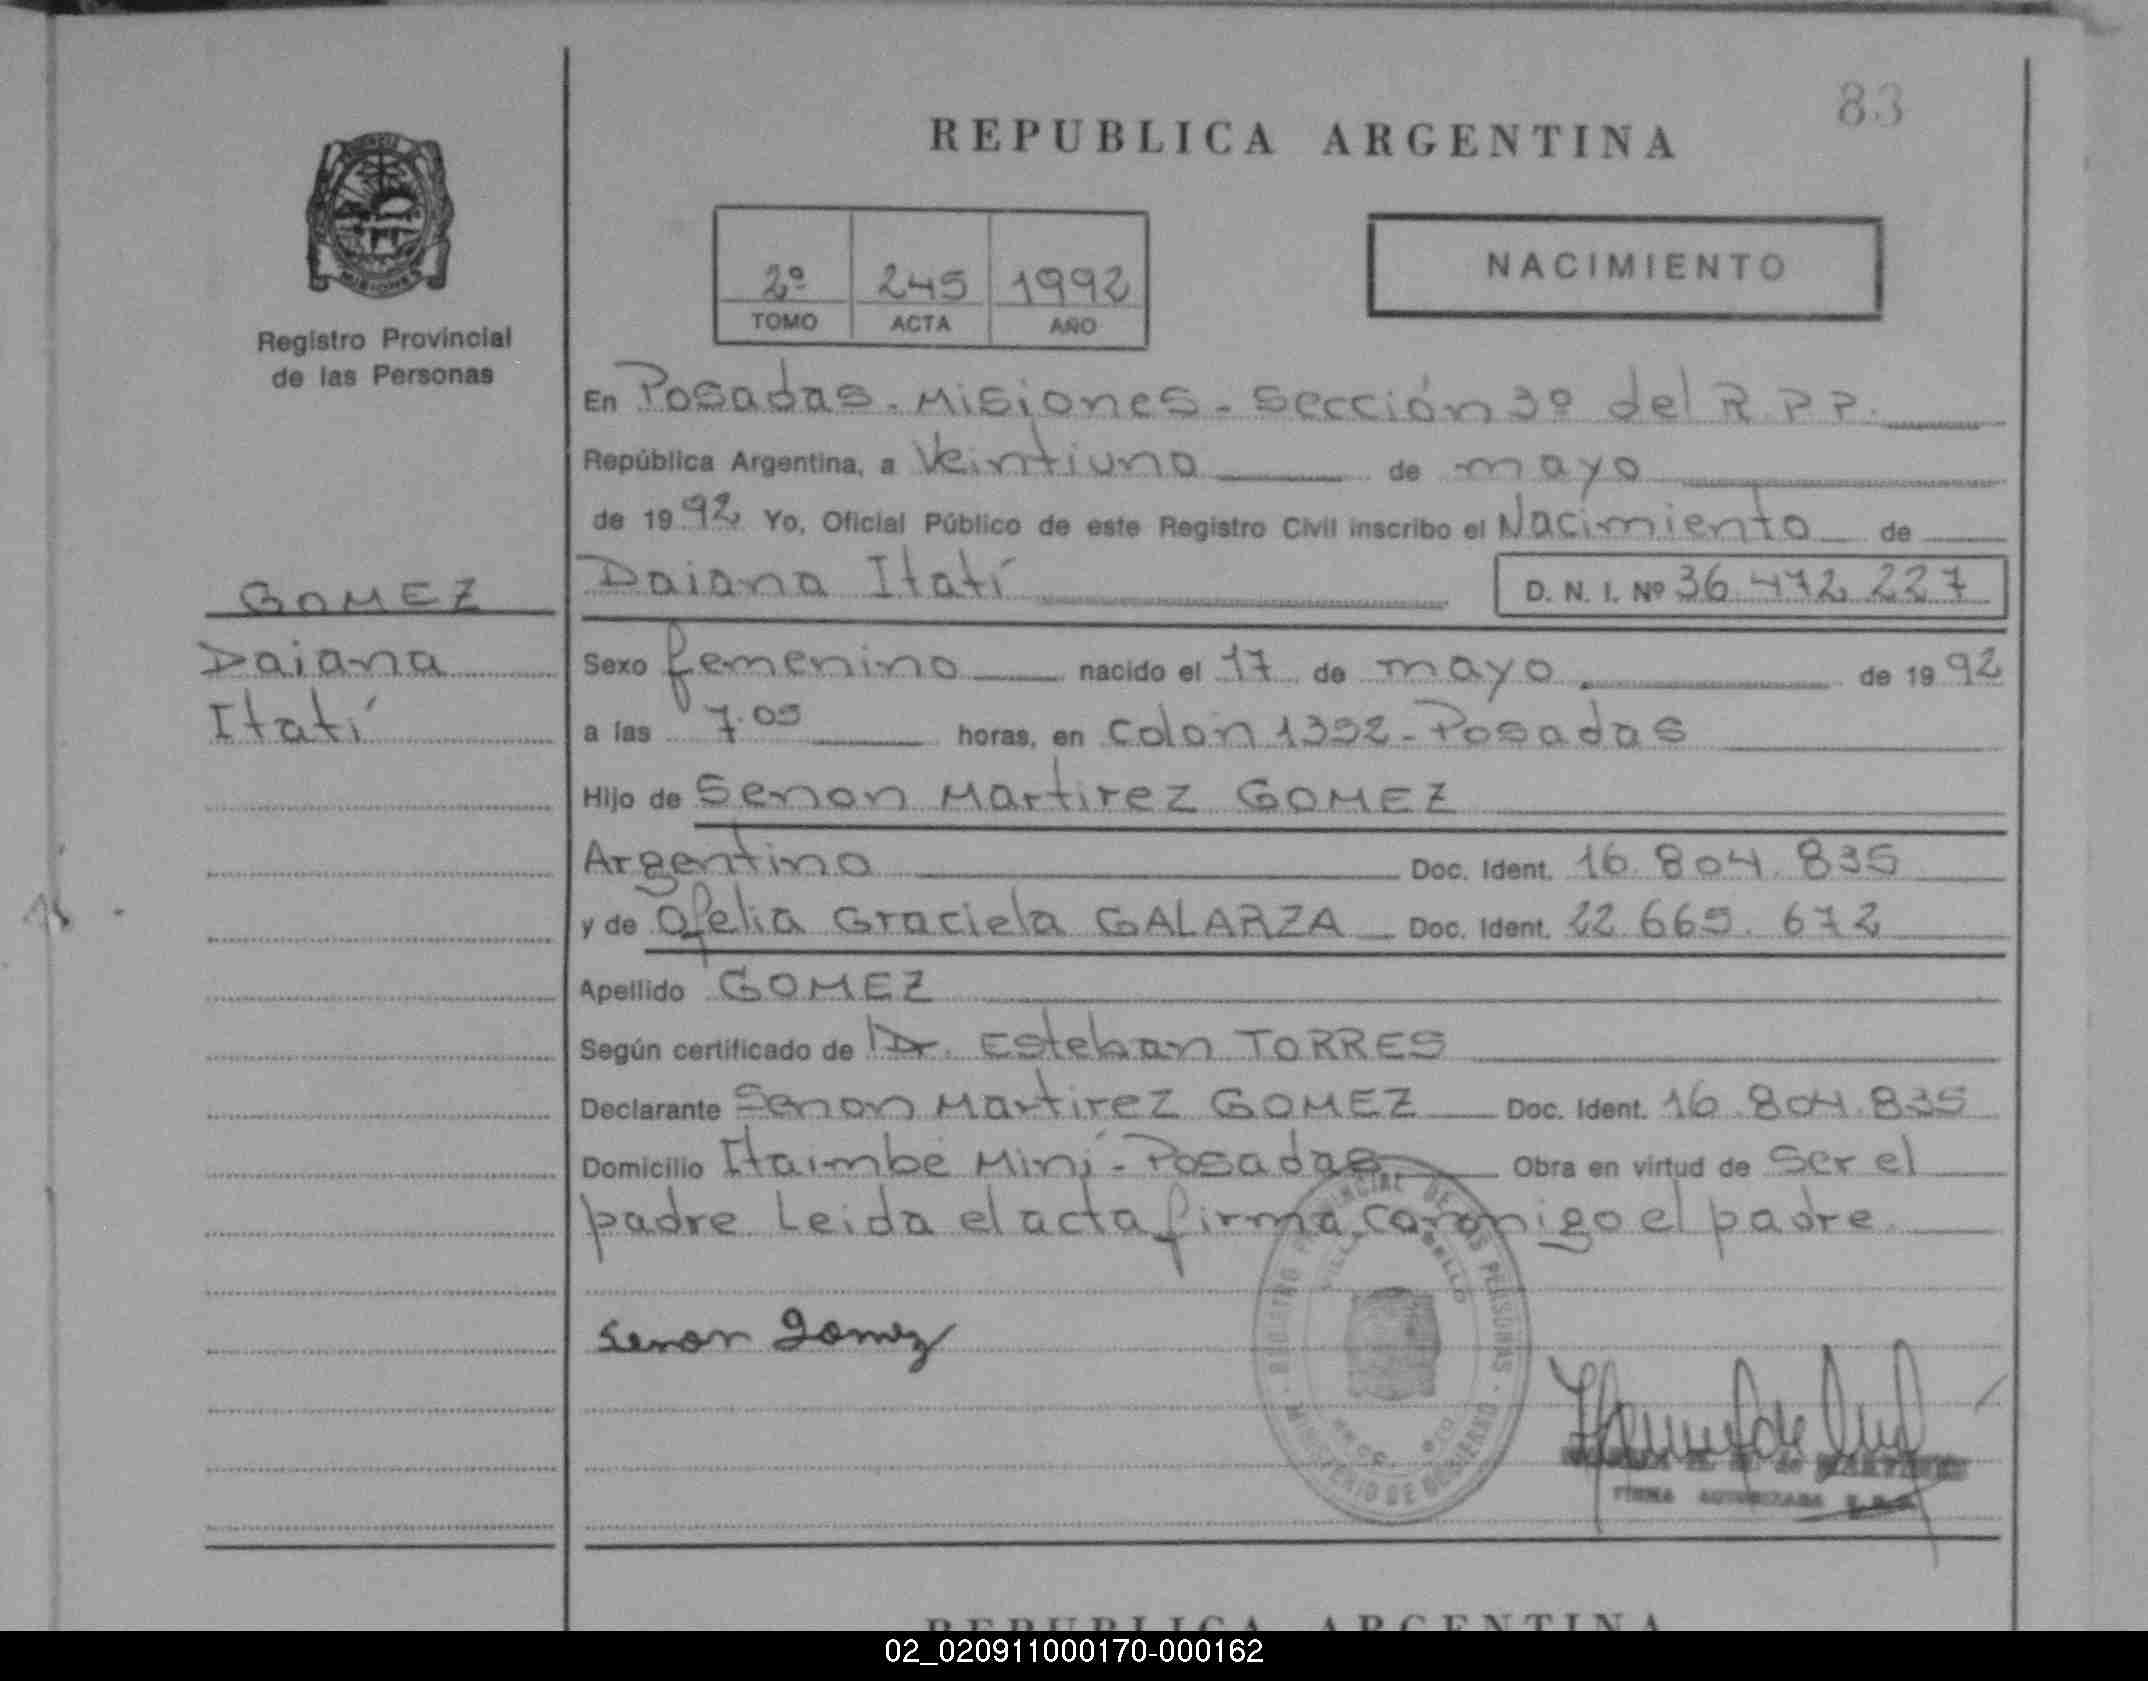 83
REPUBLICA ARGENTINA
2º 245 1992
TOMO ACTA AÑO
NACIMIENTO
Registro Provincial
de las Personas
En Posadas - Misiones - Sección 3º del R.P.P.
República Argentina, a Veintiuno de mayo
de 1992 Yo, Oficial Público de este Registro Civil inscribo el Nacimiento de
Daiana Itatí D. N. I. Nº 36.472.227
GOMEZ
Daiana
Itatí
Sexo femenino nacido el 17 de mayo de 1992
a las 7.05 horas, en Colón 1352 - Posadas
Hijo de Senon Martirez GOMEZ
Argentino Doc. Ident. 16.804.835
y de Ofelia Graciela GALARZA Doc. Ident. 22.665.672
Apellido GOMEZ
Según certificado de Dr. Esteban TORRES
Declarante Senon Martirez GOMEZ Doc. Ident. 16.804.835
Domicilio Itaimbé Miní - Posadas Obra en virtud de ser el
padre Leida el acta firma conmigo el padre
Senon Gomez
REGISTRO PROVINCIAL DE LAS PERSONAS
MINISTERIO DE GOBIERNO
FIRMA AUTORIZADA
REPUBLICA ARGENTINA
02_020911000170-000162